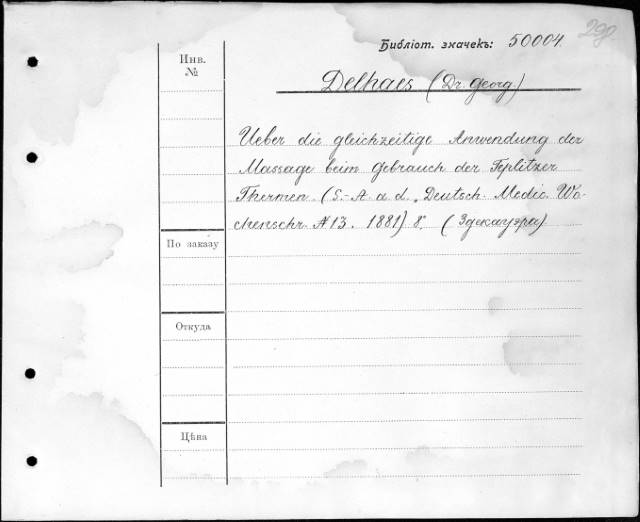 290.
Библіот. значекъ: 50004.
Инв.
№
Delhaes (Dr. Georg.)
Ueber die gleichzeitige Anwendung der
Massage beim Gebrauch der Teplitzer
Thermen. (S.-A. a. d. „Deutsch. Medic. Wo-
chenschr. № 13. 1881) 8°. (Здекауэра)
По заказу
Откуда
Цѣна